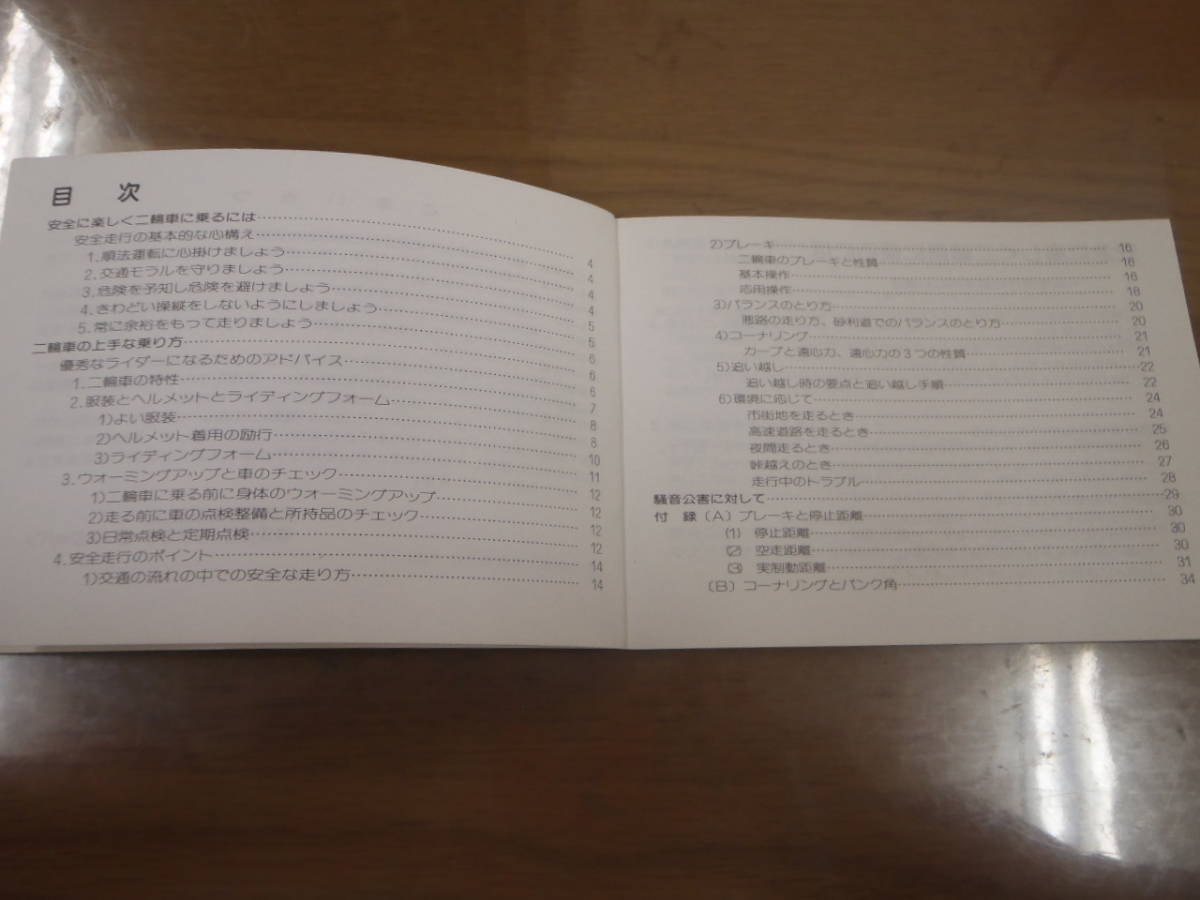 目 次
安全に楽しく二輪車に乗るには……4
安全走行の基本的な心構え……4
1.順法運転に心掛けましょう……4
2.交通モラルを守りましょう……4
3.危険を予知し危険を避けましょう……5
4.きわどい操縦をしないようにしましょう……5
5.常に余裕をもって走りましょう……6
二輪車の上手な乗り方……6
優秀なライダーになるためのアドバイス……6
1.二輪車の特性……7
2.服装とヘルメットとライディングフォーム……8
1)よい服装……8
2)ヘルメット着用の励行……10
3)ライディングフォーム……11
3.ウオーミングアップと車のチェック……12
1)二輪車に乗る前に身体のウオーミングアップ……12
2)走る前に車の点検整備と所持品のチェック……12
3)日常点検と定期点検……12
4.安全走行のポイント……14
1)交通の流れの中での安全な走り方……14
2)ブレーキ……16
二輪車のブレーキと性質……16
基本操作……16
応用操作……18
3)バランスのとり方……20
悪路の走り方、砂利道でのバランスのとり方……20
4)コーナリング……21
カーブと遠心力、遠心力の3つの性質……21
5)追い越し……22
追い越し時の要点と追い越し手順……22
6)環境に応じて……24
市街地を走るとき……24
高速道路を走るとき……25
夜間走るとき……26
峠越えのとき……27
走行中のトラブル……28
騒音公害に対して……29
付 録(A)ブレーキと停止距離……30
(1) 停止距離……30
(2) 空走距離……30
(3) 実制動距離……31
(B)コーナリングとバンク角……34